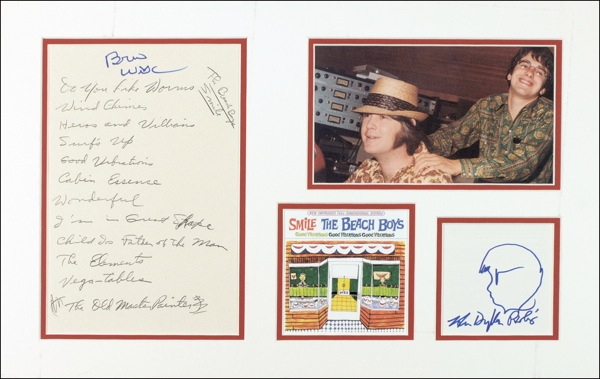 Brian
Wilson
The Beach Boys
Smile
Do You Like Worms
Wind Chimes
Heros and Villians
Surf's Up
Good Vibrations
Cabin Essence
Wonderful
I'm in Great Shape
Child Is Father of the Man
The Elements
Vega-tables
The Old Master Painter
SMiLE THE BEACH BOYS
Good Vibrations Good Vibrations Good Vibrations
Van Dyke Parks